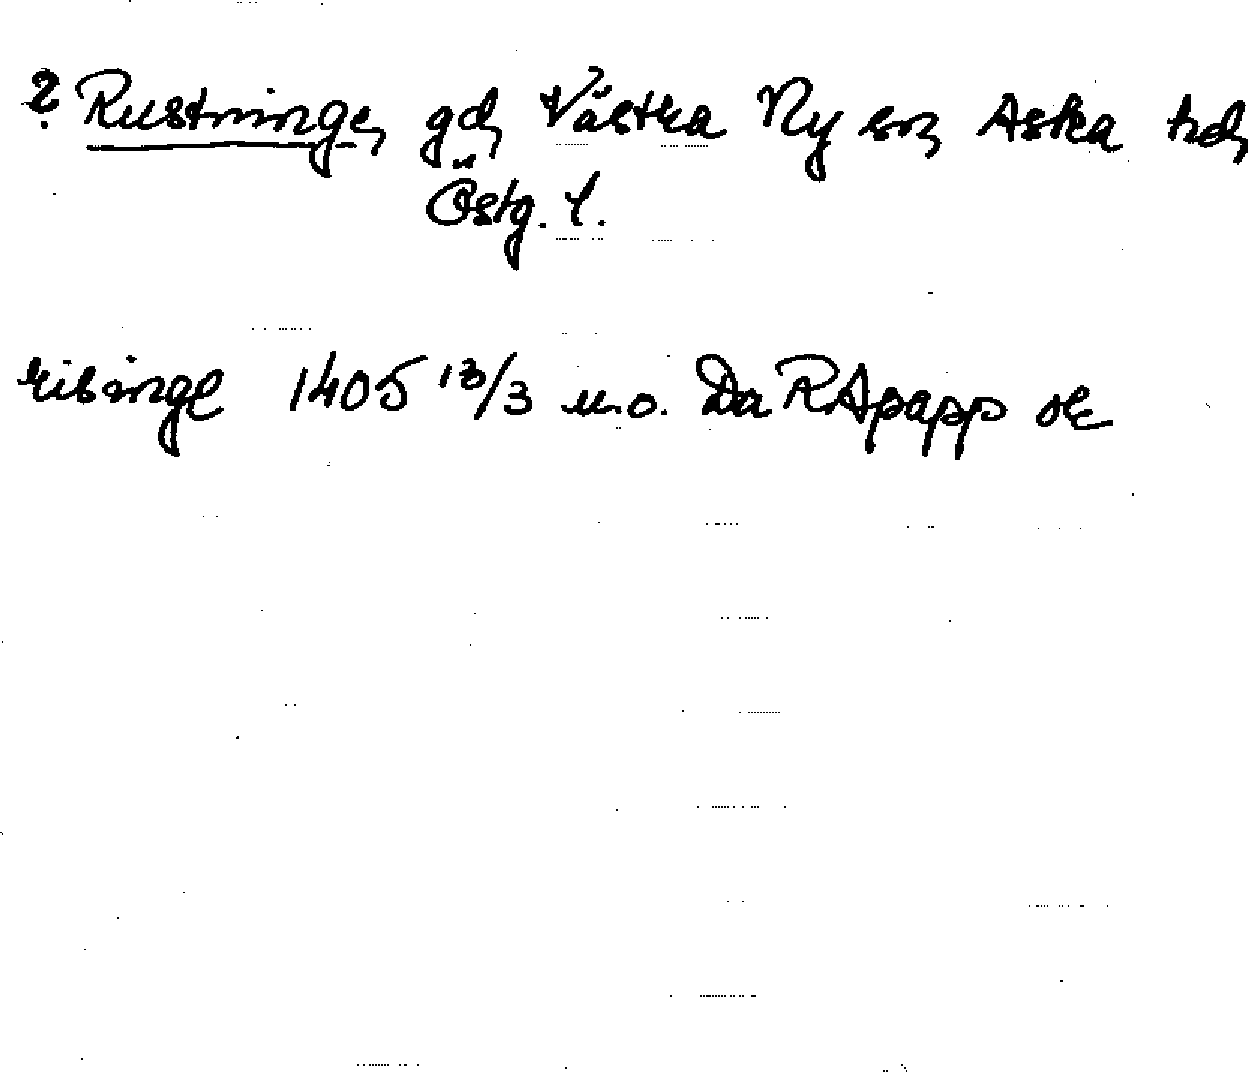 ? Rustninge, gd, Västra Ny sn, Aska hd,
Östg. l.
risinge 1405 13/3 u.o. Da RApapp or